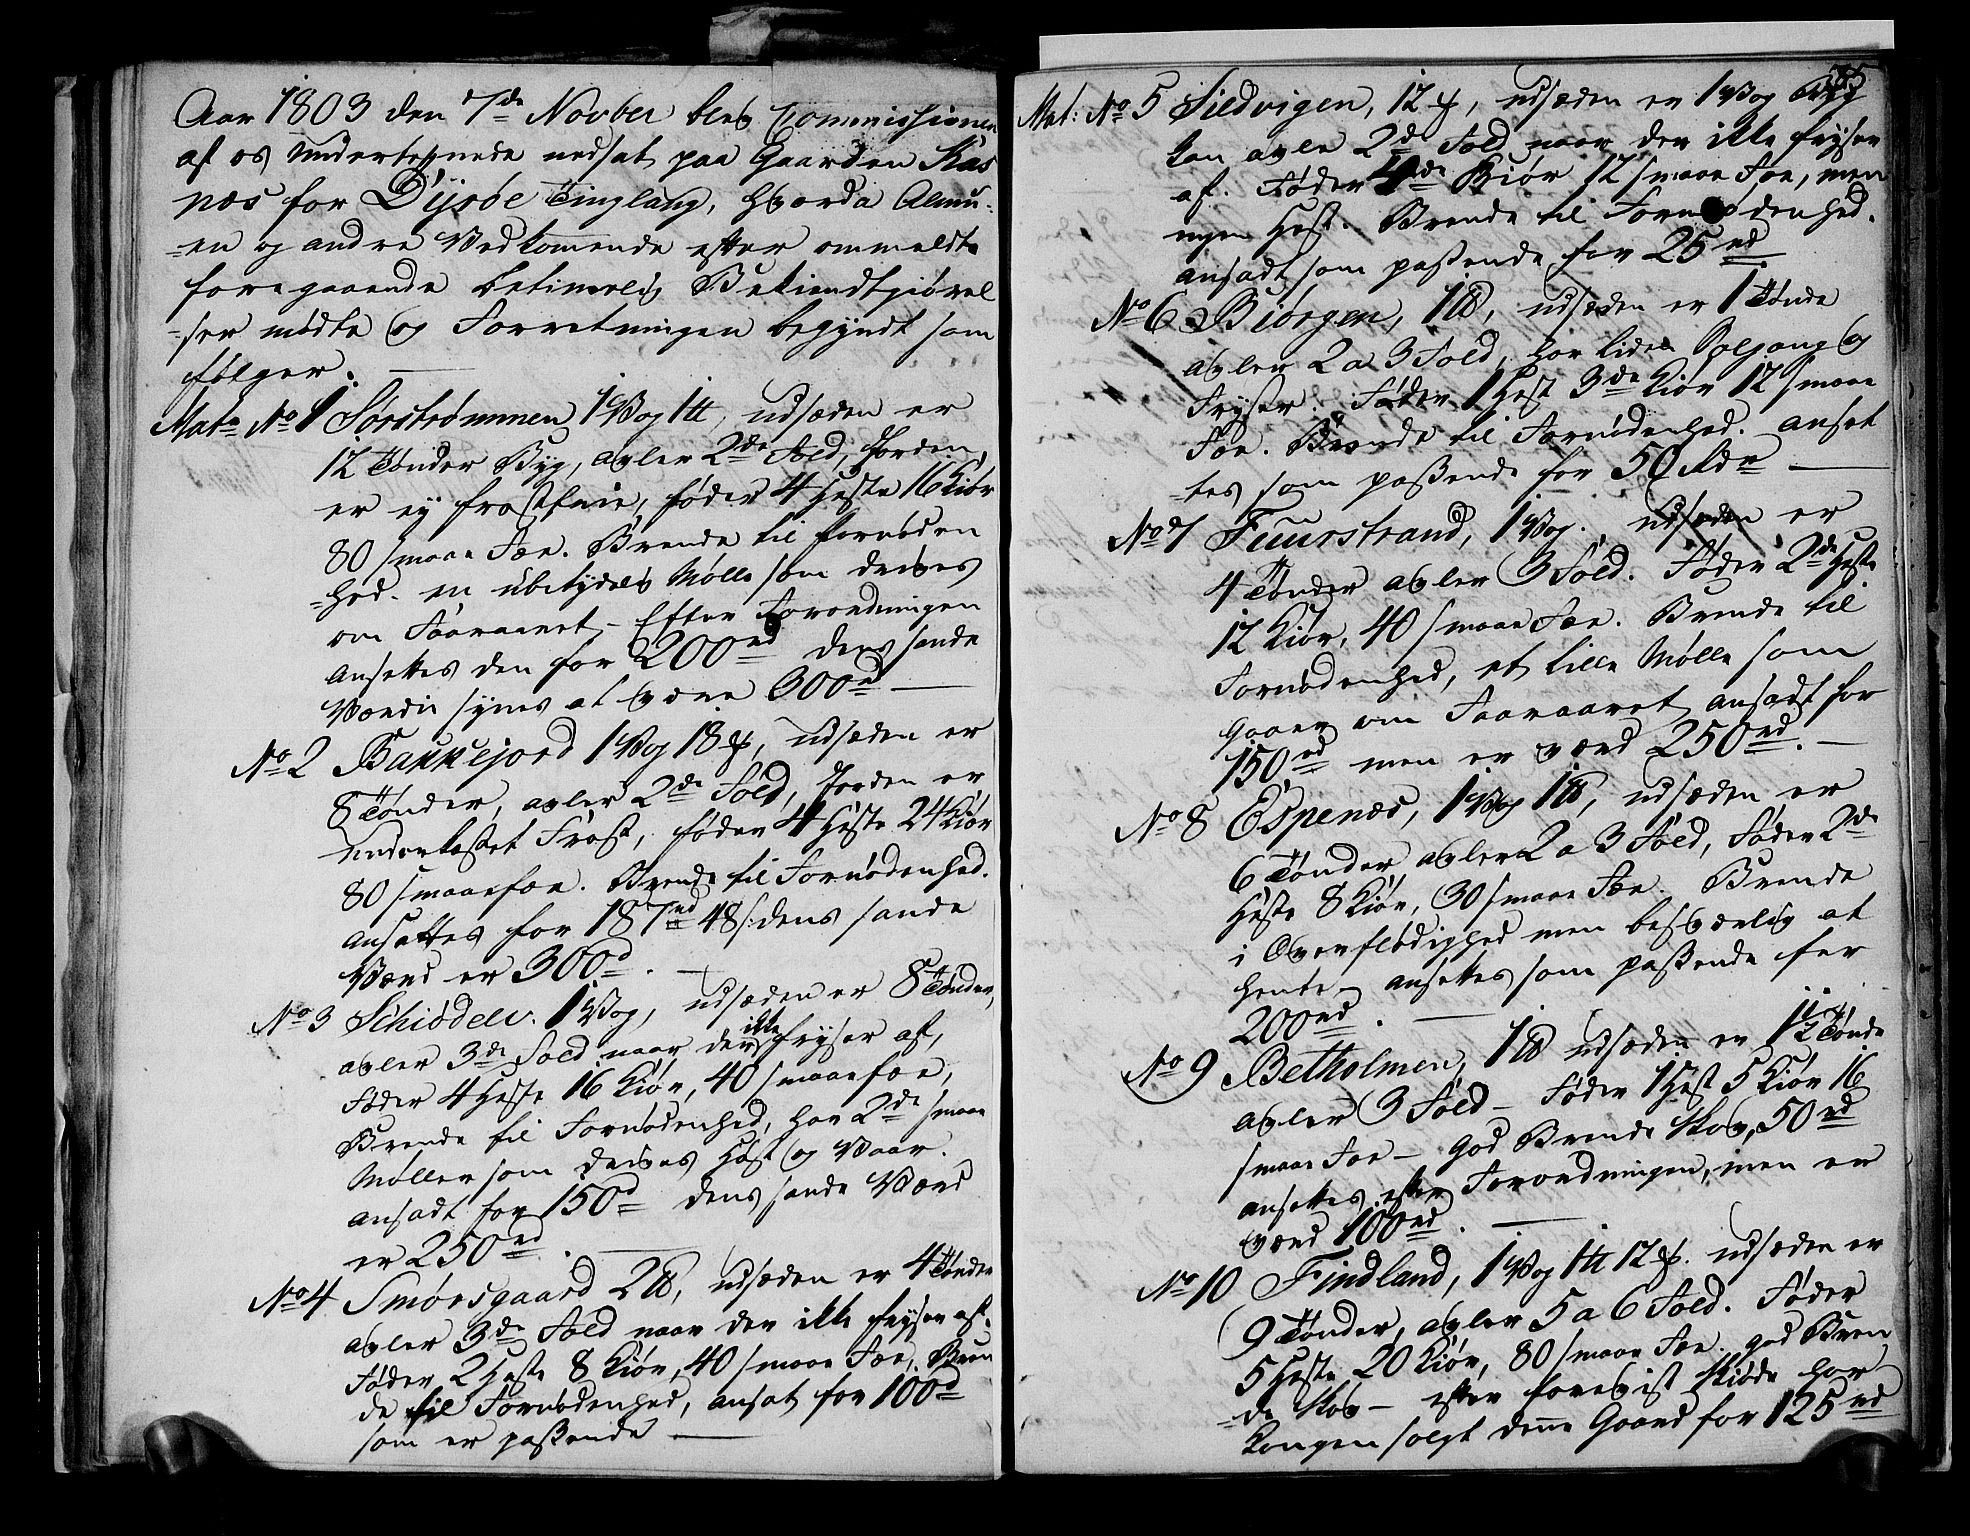 Aar 1803 den 7de Novber blev Commissionen
af os Undertegnede nedsat paa Gaarden Kas
næs for Dyrøe Tinglaug, hvorda Almu-
=en og andre Vedkomende efter ommeldte
foregaaende betimelig Bekiendtgiørel
=ser mødte og Forretningen begyndt som
følger.
Mat. No 1 Sørstrømmen 1 Vog 1 ℔, udsæden er
12 Tønder Byg, avler 2de Fold, Jorden
er ey frostfrie, føder 4 Heste 16 Kiør
80 smaae Fæe. Brende til Fornøden
=hed. en ubetydelig Mølle som drives
om Faaraaret – Efter Forordningen
ansettes den for 200 rd dens sande
Værdie synes at være 300 rd —
No 2 Bakkejord 1 Vog 18 ℔, udsæden er
8 Tønder, avler 2de Fold, Jorden er
underkastet Frost, føder 4 Heste 24 Kiør
80 smaaefæe. Brende til Fornødenhed.
ansættes for 187 rd 48 s. dens sande
Værd er 300 d. —
No 3 Schiødelv. 1 Vog, udsæden er 8 Tønder,
avler 3de Fold naar den ikke fryser af,
Føder 4 Heste 16 Kiør, 40 smaaefæe,
Brende til Fornødenhed, har 2de smaae
Møller som drives Høst og Vaar.
ansadt for 150 d dens sande Værd
er 250 rd. —
No 4 Smørsgaard 2 ℔, udsæden er 4 Tønder
avler 3de Fold naar den ikke fryser af.
Føder 2 Heste 8 Kiør, 40 smaae Fæe, Bren
de til Fornødenhed, ansat for 100 d
som er passende —
Mat: No 5 Sildvigen, 12 ℔, udsæden er 1 Vog Byg
kan avle 2de Fold naar den ikke fryser
af. Føder Kiør 12 smaae Fæe, men
ingen Hest. Brende til Fornødenhed.
ansadt som passende for 25 rd
No 6 Biørgen, 1 ℔, udsæden er 1 Tønde
avler 2 a 3 Fold, har liden Solgang og
Fryser. Føder 1 Hest 3de Kiør 12 smaae
Fæe. Brende til Fornødenhed. anset
=tes som passende for 50 Rdr —
No 7 Fuurstrand, 1 Vog. udsæden er
4 Tønder avler 3 Fold. Føder 2de Heste
12 Kiør, 40 smaae Fæe. Brende til
Fornødenhed, et lille Mølle som
gaaer om Faaraaret ansadt for
150 rd men er værd 250 rd. —
No 8 Espenæs, 1 Vog 1 ℔, udsæden er
6 Tønder, avler 2 a 3 Fold, Føder 2de
Heste 8 Kiør, 30 smaae Fæe. Brende
i Overflødighed men besværlig at
hente – ansettes som passende for
200 rd. —
No 9 Betholmen, 1 ℔ udsæden er 1½ Tønde
avler 3 Fold – Føder 1 Hest 5 Kiør 16
smaae Fæe – God Brende Skov, 50 rd
ansettes efter Forordningen, men er
værd 100 rd. —
No 10 Findland, 1 Vog 1 ℔ 12 ℔. udsæden er
9 Tønder, avler 5 a 6 Fold. Føder
5 Heste 20 Kiør, 80 smaae Fæe. god Bren
=de Skov – efter foreviist Skiøde har
Kongen solgt denne Gaard for 125 rd